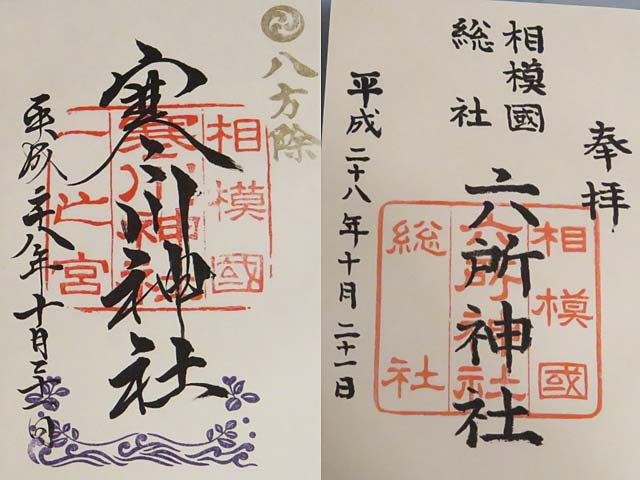 八方除
相模國
寒川神社
寒川神社
一之宮
平成二十八年十月二十一日
奉拝
相模國
総社
六所神社
相模國
六所神社
総社
平成二十八年十月二十一日